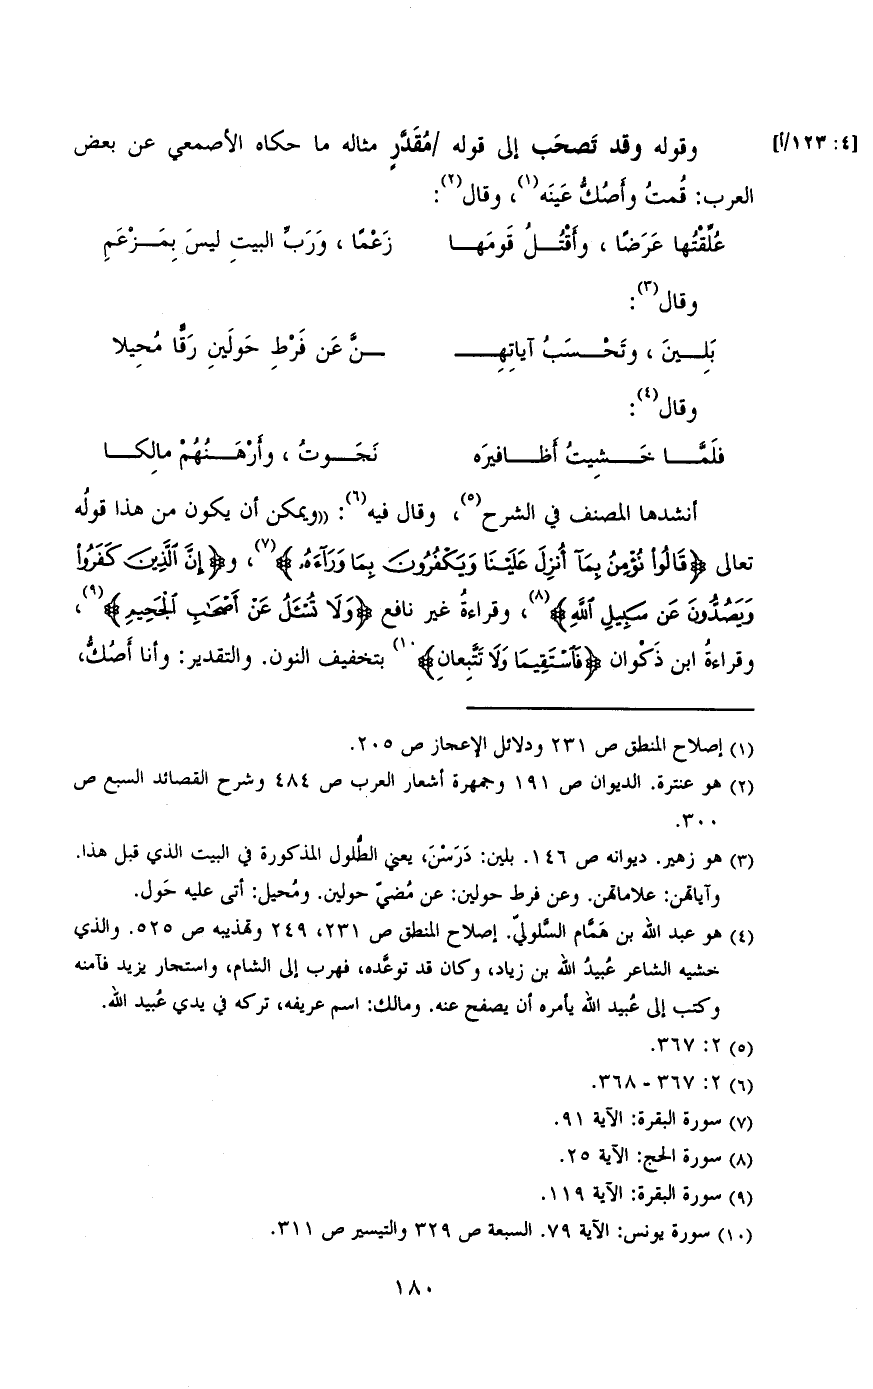 [٤: ١٢٣/أ] وقوله وقد تَصحَب إلى قوله /مُقَدَّرٍ مثاله ما حكاه الأصمعي عن بعض
العرب: قُمتُ وأَصُكُّ عَينَه(١)، وقال(٢):
عُلِّقْتُها عَرَضًا ، وأَقْتُــلُ قَومَهــا زَعْمًا ، ورَبِّ البيتِ ليسَ بِمَــزْعَمِ
وقال(٣):
بَلِــينَ ، وتَحْــسَبُ آياتِهِــ ــنَّ عَن فَرْطِ حَولَينِ رَقًّا مُحيلا
وقال(٤):
فلَمَّــا خَــشِيتُ أَظــافيرَه نَجَــوتُ ، وأَرْهَــنُهُمْ مالِكــا
أنشدها المصنف في الشرح(٥)، وقال فيه(٦): ((ويمكن أن يكون من هذا قولُه
تعالى ﴿قَالُواْ نُؤْمِنُ بِمَآ أُنزِلَ عَلَيْنَا وَيَكْفُرُونَ بِمَا وَرَآءَهُۥ﴾(٧)، و﴿إِنَّ ٱلَّذِينَ كَفَرُواْ
وَيَصُدُّونَ عَن سَبِيلِ ٱللَّهِ﴾(٨)، وقراءةُ غير نافع ﴿وَلَا تُسْـَٔلُ عَنْ أَصْحَٰبِ ٱلْجَحِيمِ﴾(٩)،
وقراءةُ ابن ذَكْوان ﴿فَٱسْتَقِيمَا وَلَا تَتَّبِعانِ﴾(١٠) بتخفيف النون. والتقدير: وأنا أَصُكُّ،
(١) إصلاح المنطق ص ٢٣١ ودلائل الإعجاز ص ٢٠٥.
(٢) هو عنترة. الديوان ص ١٩١ وجمهرة أشعار العرب ص ٤٨٤ وشرح القصائد السبع ص
٣٠٠.
(٣) هو زهير. ديوانه ص ١٤٦. بلين: دَرَسْنَ، يعني الطُّلول المذكورة في البيت الذي قبل هذا.
وآياتهن: علاماتهن. وعن فرط حولين: عن مُضيّ حولين. ومُحيل: أتى عليه حَول.
(٤) هو عبد الله بن هَمَّام السَّلوليّ. إصلاح المنطق ص ٢٣١، ٢٤٩ وتهذيبه ص ٥٢٥. والذي
خشيه الشاعر عُبيدُ الله بن زياد، وكان قد توعَّده، فهرب إلى الشام، واستجار يزيد فآمنه
وكتب إلى عُبيد الله يأمره أن يصفح عنه. ومالك: اسم عريفه، تركه في يدي عُبيد الله.
(٥) ٢: ٣٦٧.
(٦) ٢: ٣٦٧ - ٣٦٨.
(٧) سورة البقرة: الآية ٩١.
(٨) سورة الحج: الآية ٢٥.
(٩) سورة البقرة: الآية ١١٩.
(١٠) سورة يونس: الآية ٧٩. السبعة ص ٣٢٩ والتيسير ص ٣١١.
١٨٠